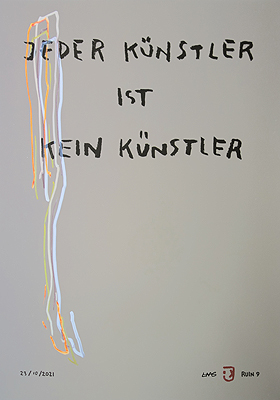 JEDER KÜNSTLER
IST
KEIN KÜNSTLER
23/10/2021
RUIN 9